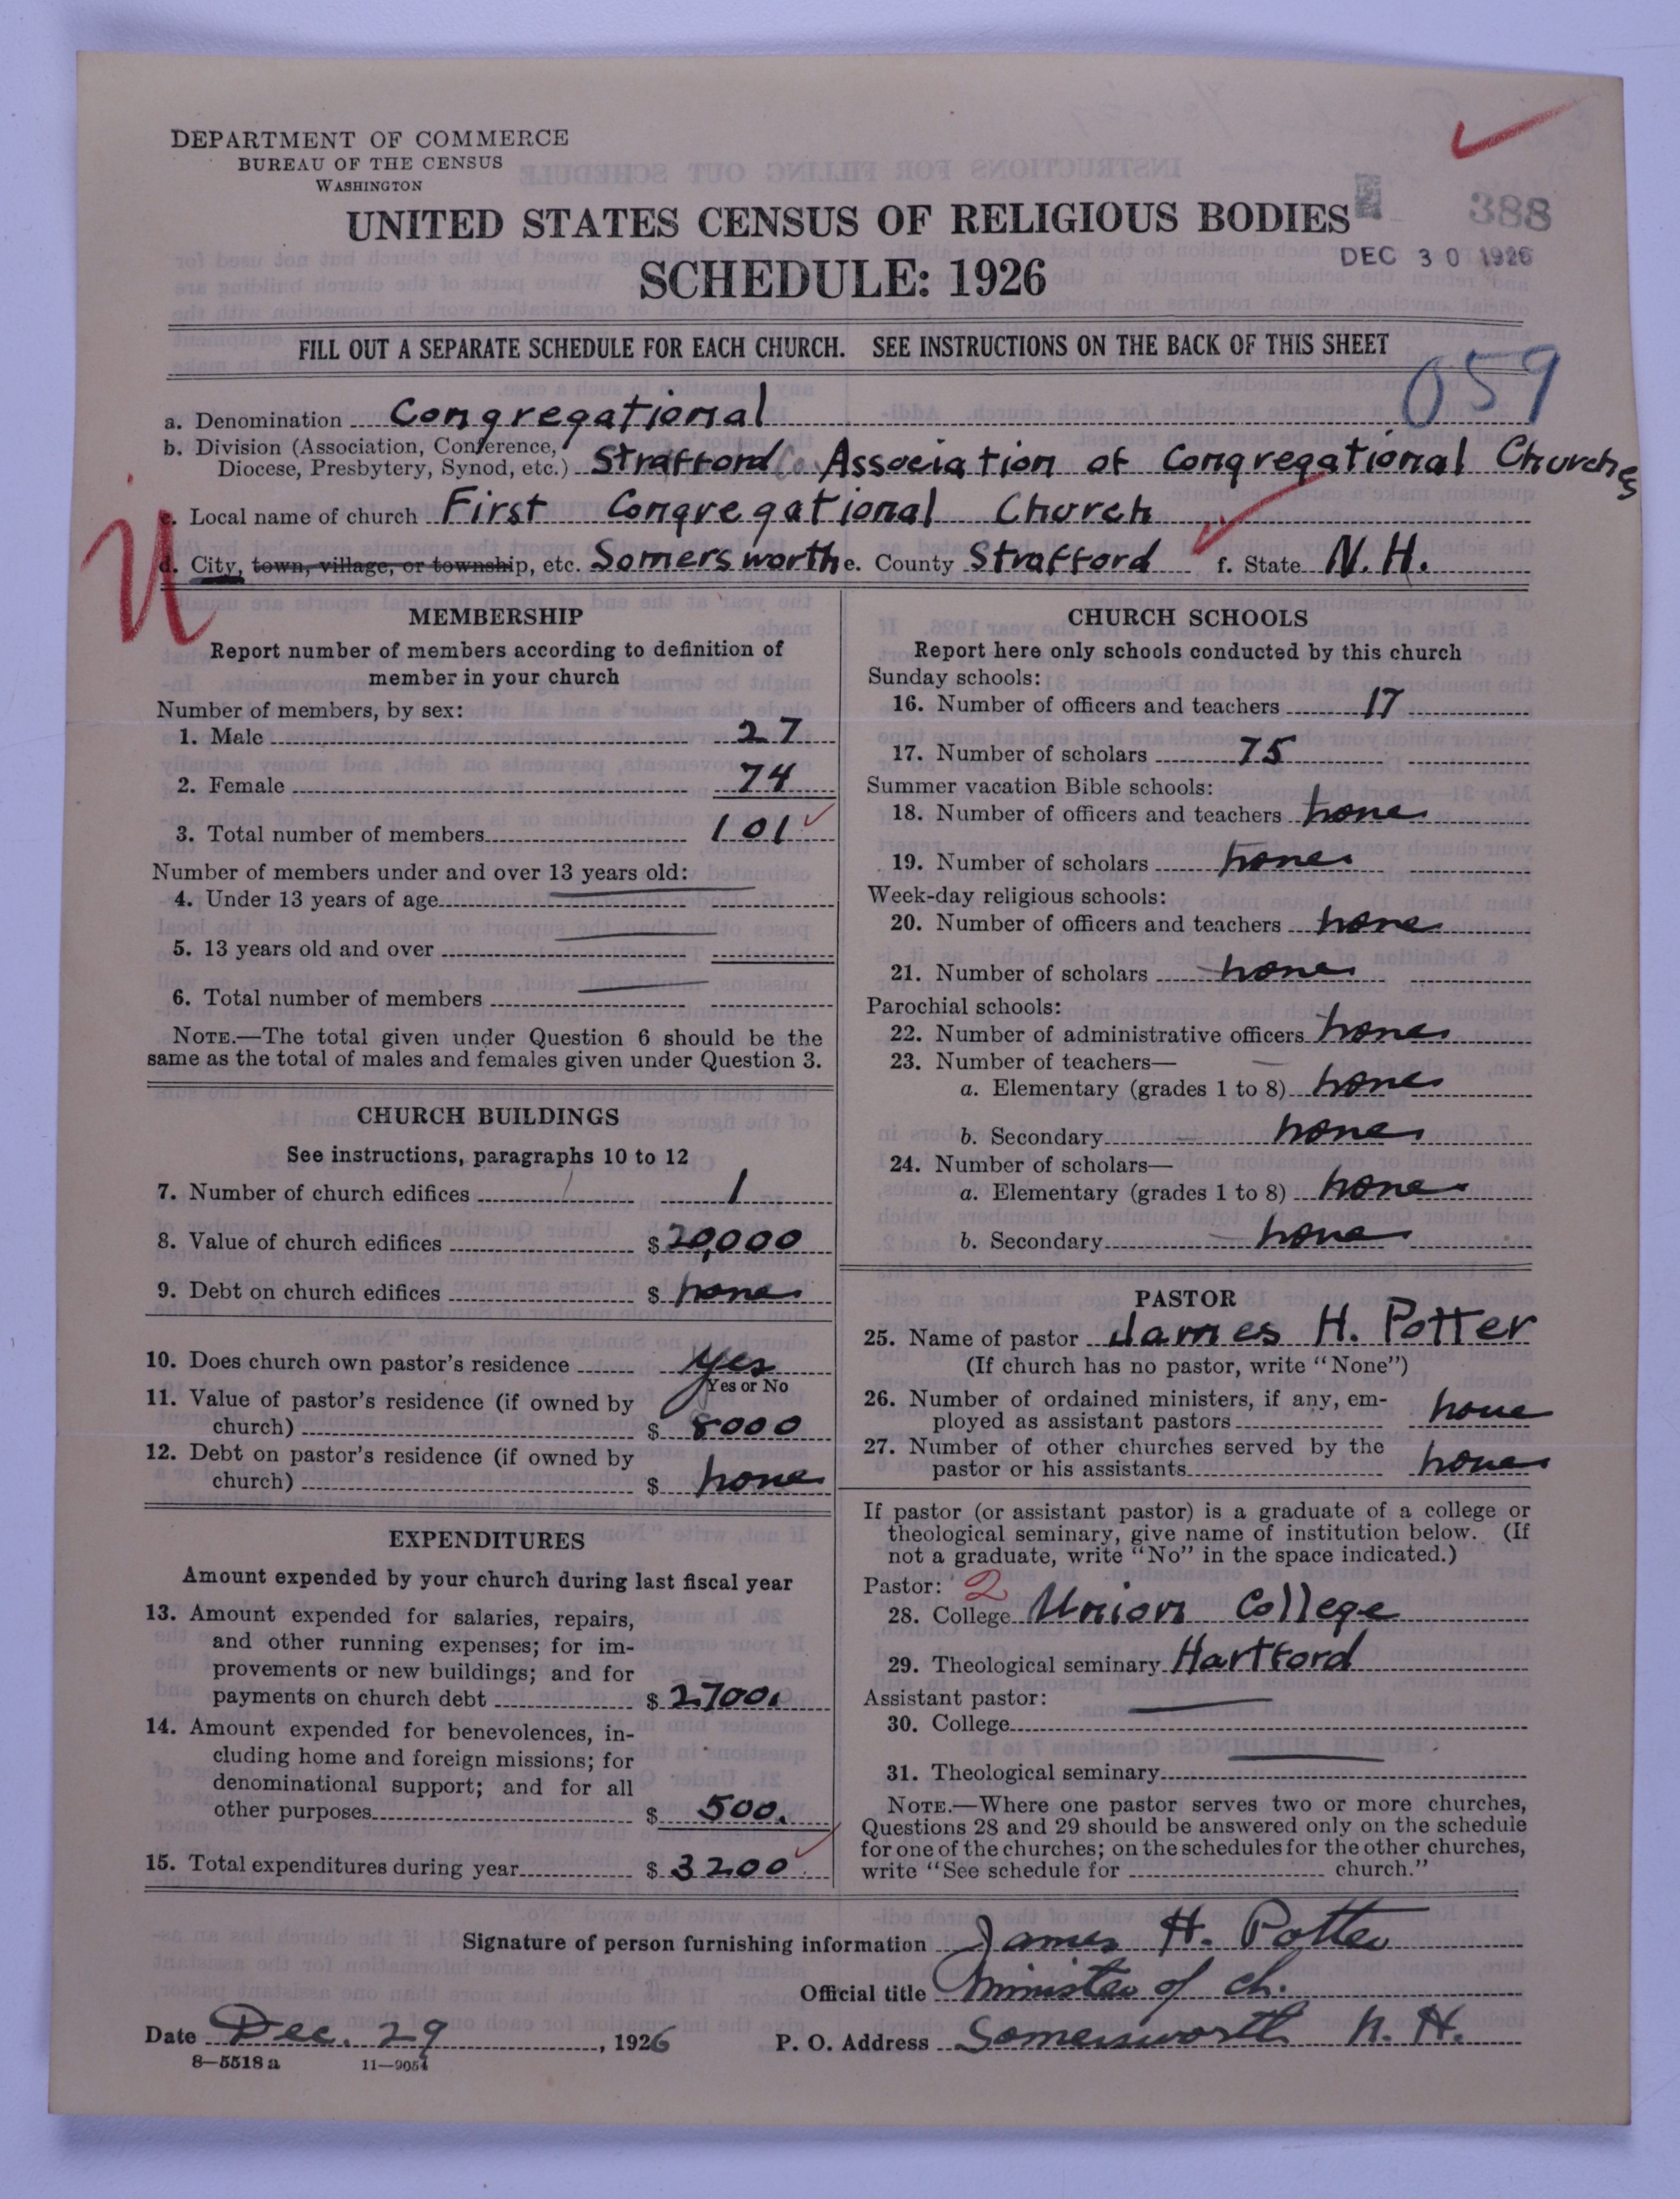 DEPARTMENT OF COMMERCE
BUREAU OF THE CENSUS
WASHINGTON
UNITED STATES CENSUS OF RELIGIOUS BODIES
388
DEC 30 1926
SCHEDULE: 1926
FILL OUT A SEPARATE SCHEDULE FOR EACH CHURCH. SEE INSTRUCTIONS ON THE BACK OF THIS SHEET
059
a. Denomination Congregational
b. Division (Association, Conference,
Diocese, Presbytery, Synod, etc.) Strafford Co. Association of Congregational Churches
c. Local name of church First Congregational Church
d. City, town, village, or township, etc. Somersworth e. County Strafford f. State N. H.
MEMBERSHIP
Report number of members according to definition of
member in your church
Number of members, by sex:
1. Male 27
2. Female 74
3. Total number of members 101
Number of members under and over 13 years old:
4. Under 13 years of age
5. 13 years old and over
6. Total number of members
NOTE.—The total given under Question 6 should be the
same as the total of males and females given under Question 3.
CHURCH BUILDINGS
See instructions, paragraphs 10 to 12
7. Number of church edifices 1
8. Value of church edifices $ 20,000
9. Debt on church edifices $ none
10. Does church own pastor's residence yes
Yes or No
11. Value of pastor's residence (if owned by
church) $ 8000
12. Debt on pastor's residence (if owned by
church) $ none
EXPENDITURES
Amount expended by your church during last fiscal year
13. Amount expended for salaries, repairs,
and other running expenses; for im-
provements or new buildings; and for
payments on church debt $ 2700.
14. Amount expended for benevolences, in-
cluding home and foreign missions; for
denominational support; and for all
other purposes $ 500.
15. Total expenditures during year $ 3200
CHURCH SCHOOLS
Report here only schools conducted by this church
Sunday schools:
16. Number of officers and teachers 17
17. Number of scholars 75
Summer vacation Bible schools:
18. Number of officers and teachers none
19. Number of scholars none
Week-day religious schools:
20. Number of officers and teachers none
21. Number of scholars none
Parochial schools:
22. Number of administrative officers none
23. Number of teachers—
a. Elementary (grades 1 to 8) none
b. Secondary none
24. Number of scholars—
a. Elementary (grades 1 to 8) none
b. Secondary none
PASTOR
25. Name of pastor James H. Potter
(If church has no pastor, write "None")
26. Number of ordained ministers, if any, em-
ployed as assistant pastors none
27. Number of other churches served by the
pastor or his assistants none
If pastor (or assistant pastor) is a graduate of a college or
theological seminary, give name of institution below. (If
not a graduate, write "No" in the space indicated.)
Pastor: 2
28. College Union College
29. Theological seminary Hartford
Assistant pastor:
30. College
31. Theological seminary
NOTE.—Where one pastor serves two or more churches,
Questions 28 and 29 should be answered only on the schedule
for one of the churches; on the schedules for the other churches,
write "See schedule for church."
Signature of person furnishing information James H. Potter
Official title Minister of ch.
Date Dec. 29, 1926 P. O. Address Somersworth N. H.
8—5518 a 11—9054